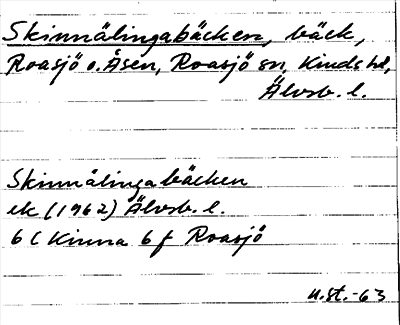 Skinnålingabäcken, bäck,
Roasjö o. Åsen, Roasjö sn, Kinds hd,
Älvsb. l.
Skinnålingabäcken
ek (1962) Älvsb. l.
6 C Kinna 6 f Roasjö
u.st.-63